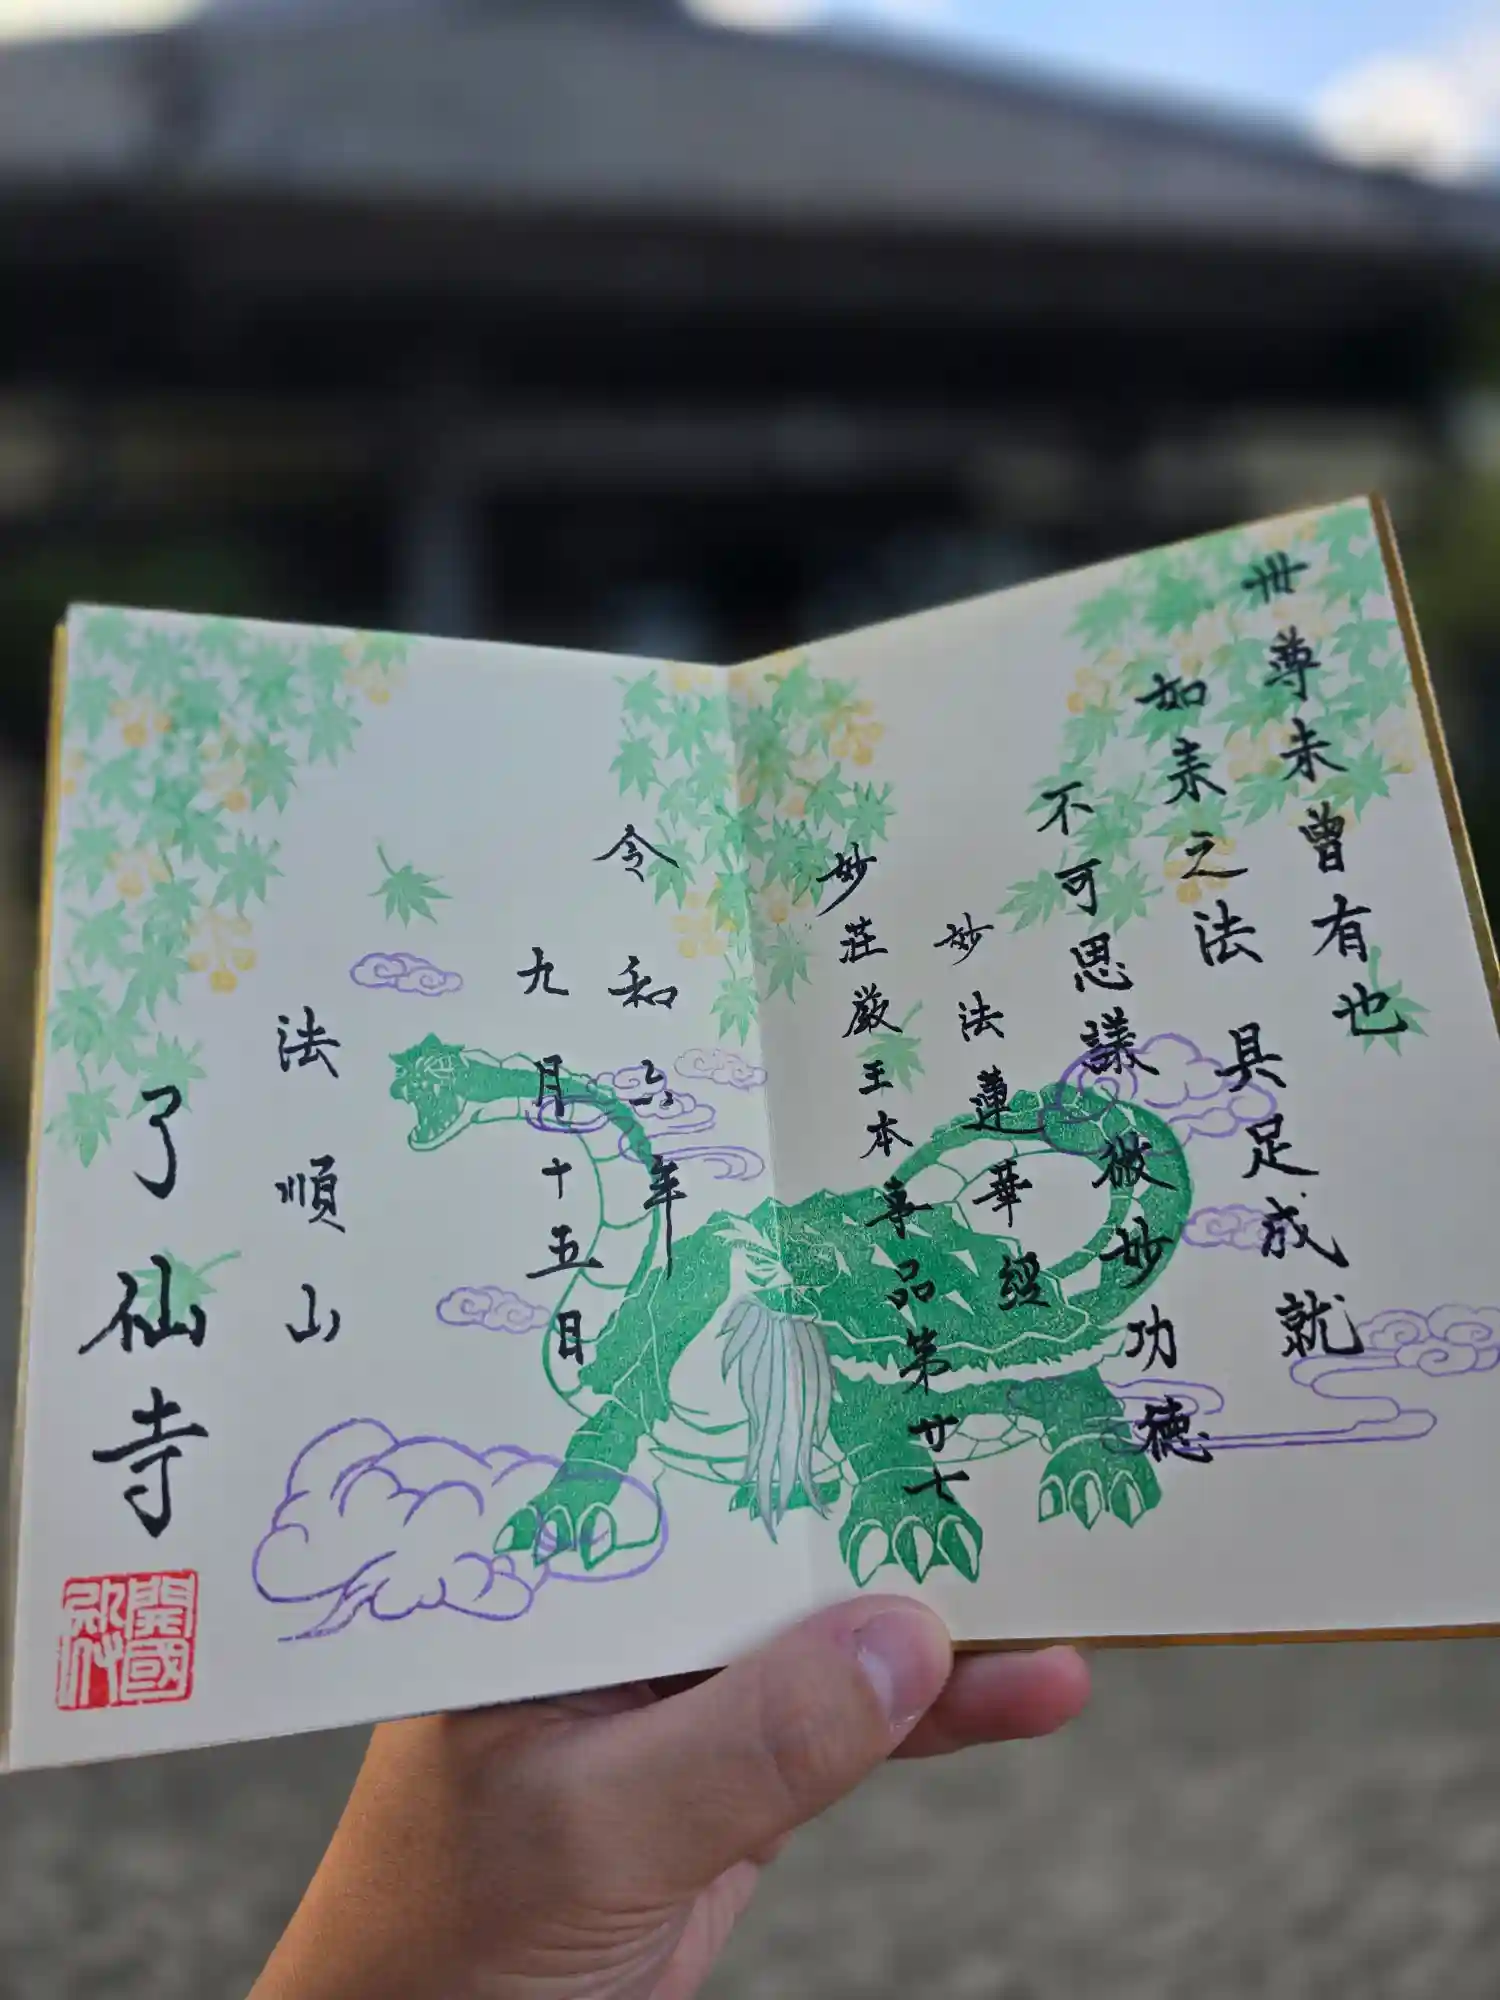 丗尊未曾有也
如来之法具足成就
不可思議微妙功徳
妙法蓮華経
妙荘厳王本事品第廿七
令和六年
九月十五日
法順山
了仙寺
開國